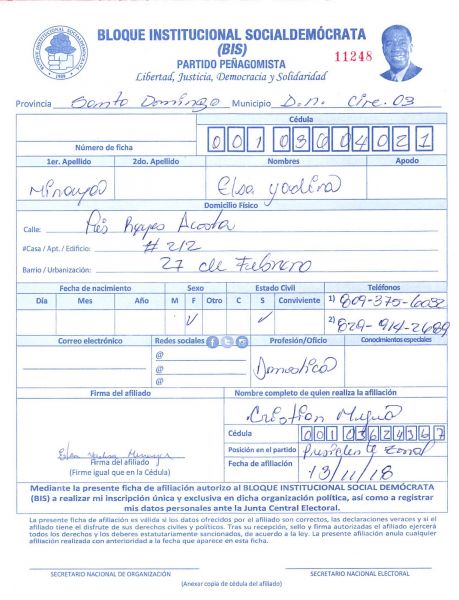 BLOQUE INSTITUCIONAL SOCIALDEMÓCRATA
(BIS)
PARTIDO PEÑAGOMISTA
Libertad, Justicia, Democracia y Solidaridad
11248
BLOQUE INSTITUCIONAL SOCIALDEMOCRATA
Provincia Santo Domingo Municipio D.N. Circ. 03
Cédula
Número de ficha 001 0364021
1er. Apellido 2do. Apellido Nombres Apodo
Minaya Elsa Yadira
Domicilio Físico
Calle: Reyes Acosta
#Casa / Apt. / Edificio: # 212
Barrio / Urbanización: 27 de Febrero
Fecha de nacimiento Sexo Estado Civil Teléfonos
Día Mes Año M F Otro C S Conviviente 1) 809-375-6032
2) 829-914-2689
Correo electrónico Redes sociales Profesión/Oficio Conodmientos especiales
@
@ Domestica
@
Firma del afiliado Nombre completo de quien realiza la afiliación
Cristian
Cédula
001 0362436 7
Posición en el partido Presidente Zonal
Firma del afiliado
(Firme igual que en la Cédula)
Fecha de afiliación 13/11/18
Mediante la presente ficha de afiliación autorizo al BLOQUE INSTITUCIONAL SOCIAL DEMÓCRATA
(BIS) a realizar mi inscripción única y exclusiva en dicha organización política, así como a registrar
mis datos personales ante la Junta Central Electoral.
La presente ficha de afiliación es válida si los datos ofrecidos por el afiliado son correctos, las declaraciones veraces y si el
afiliado tiene el disfrute de sus derechos civiles y políticos. Tras su recepción, sello y firma autorizadas el afiliado ejercerá
todos los derechos y los deberes estatutariamente sancionados, de acuerdo a la ley. La presente afiliación anula cualquier
afiliación realizada con anterioridad a la fecha que aparece en esta ficha.
SECRETARIO NACIONAL DE ORGANIZACIÓN SECRETARIO NACIONAL ELECTORAL
(Anexar copia de cédula del afiliado)